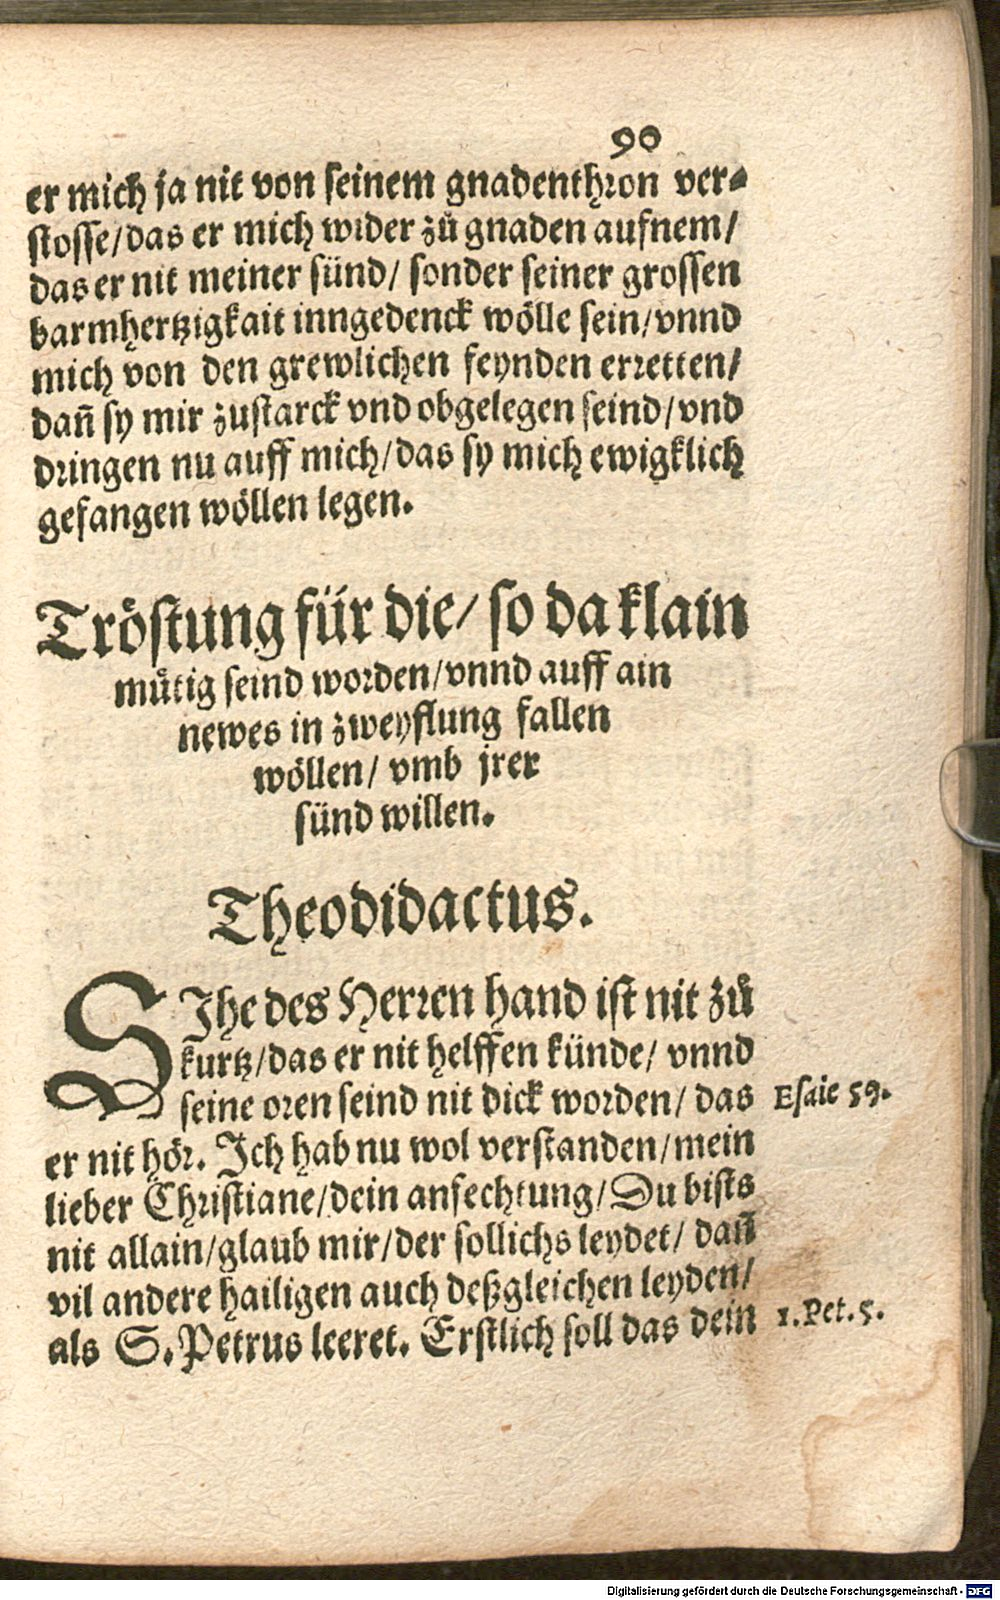 90
er mich ja nit von seinem gnadenthron ver-
stosse/das er mich wider zů gnaden aufnem/
das er nit meiner sünd/ sonder seiner grossen
barmhertzigkait inngedenck wölle sein/vnnd
mich von den grewlichen feynden erretten/
dañ sy mir zustarck vnd obgelegen seind/vnd
dringen nu auff mich/das sy mich ewigklich
gefangen wöllen legen.
Tröstung für die/ so da klain
mütig seind worden/vnnd auff ain
newes in zweyflung fallen
wöllen/ vmb jrer
sünd willen.
Theodidactus.
SIhe des Herren hand ist nit zů
kurtz/das er nit helffen künde/ vnnd
seine oren seind nit dick worden/ das
Esaie 59.
er nit hör. Ich hab nu wol verstanden/mein
lieber Christiane/dein anfechtung/Du bists
nit allain/glaub mir/der sollichs leydet/ dañ
vil andere hailigen auch deßgleichen leyden/
als S. Petrus leeret. Erstlich soll das dein
1. Pet. 5.
Digitalisierung gefördert durch die Deutsche Forschungsgemeinschaft - DFG